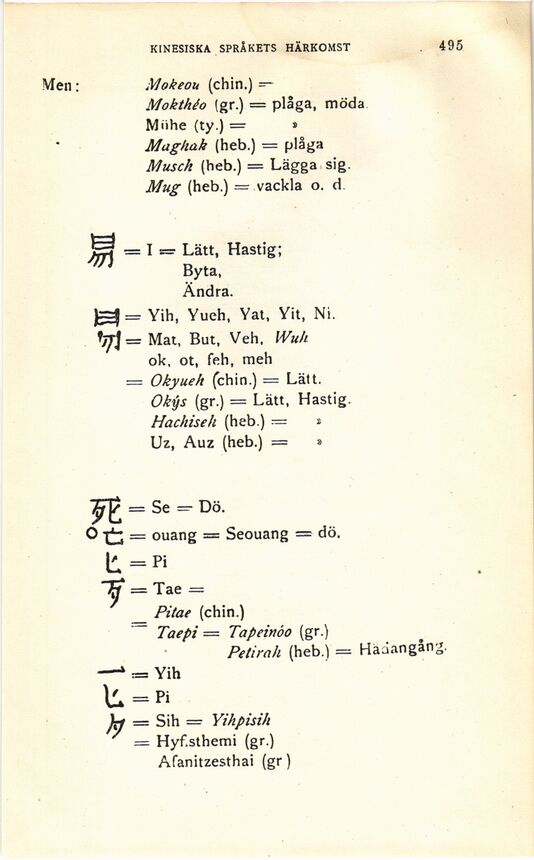 KINESISKA SPRÅKETS HÄRKOMST 495
Men: Mokeou (chin.) =
Mokthéo (gr.) = plåga, möda
Mühe (ty.) = »
Maghak (heb.) = plåga
Musch (heb.) = Lägga sig.
Mug (heb.) = vackla o. d.
易 = I = Lätt, Hastig;
Byta,
Ändra.
日 = Yih, Yueh, Yat, Yit, Ni.
勿 = Mat, But, Veh, Wuh
ok, ot, feh, meh
= Okyueh (chin.) = Lätt.
Okýs (gr.) = Lätt, Hastig.
Hachiseh (heb.) = »
Uz, Auz (heb.) = »
死 = Se = Dö.
○亡 = ouang = Seouang = dö.
匕 = Pi
歹 = Tae =
Pitae (chin.)
= Taepi = Tapeinóo (gr.)
Petirah (heb.) = Hädangång.
一 = Yih
匕 = Pi
夕 = Sih = Yihpisih
= Hyf.sthemi (gr.)
Afanitzesthai (gr)